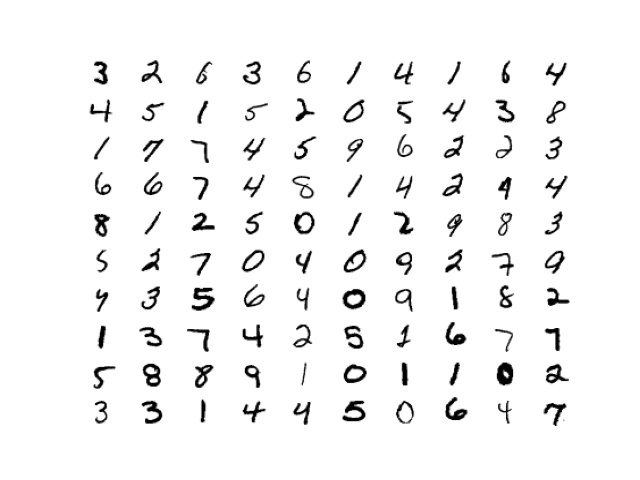 3 2 6 3 6 1 4 1 6 4
4 5 1 5 2 0 5 4 3 8
1 7 7 4 5 9 6 2 2 3
6 6 7 4 8 1 4 2 4 4
8 1 2 5 0 1 2 9 8 3
5 2 7 0 4 0 9 2 7 9
4 3 5 6 4 0 9 1 8 2
1 3 7 4 2 5 1 6 7 7
5 8 8 9 1 0 1 1 0 2
3 3 1 4 4 5 0 6 4 7